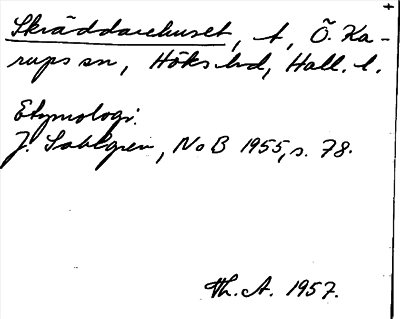 Skräddarehuset, t, Ö. Ka-
rups sn, Höks hd, Hall. l.
Etymologi:
J. Sahlgren, NoB 1955, s. 78.
Th. A. 1957.